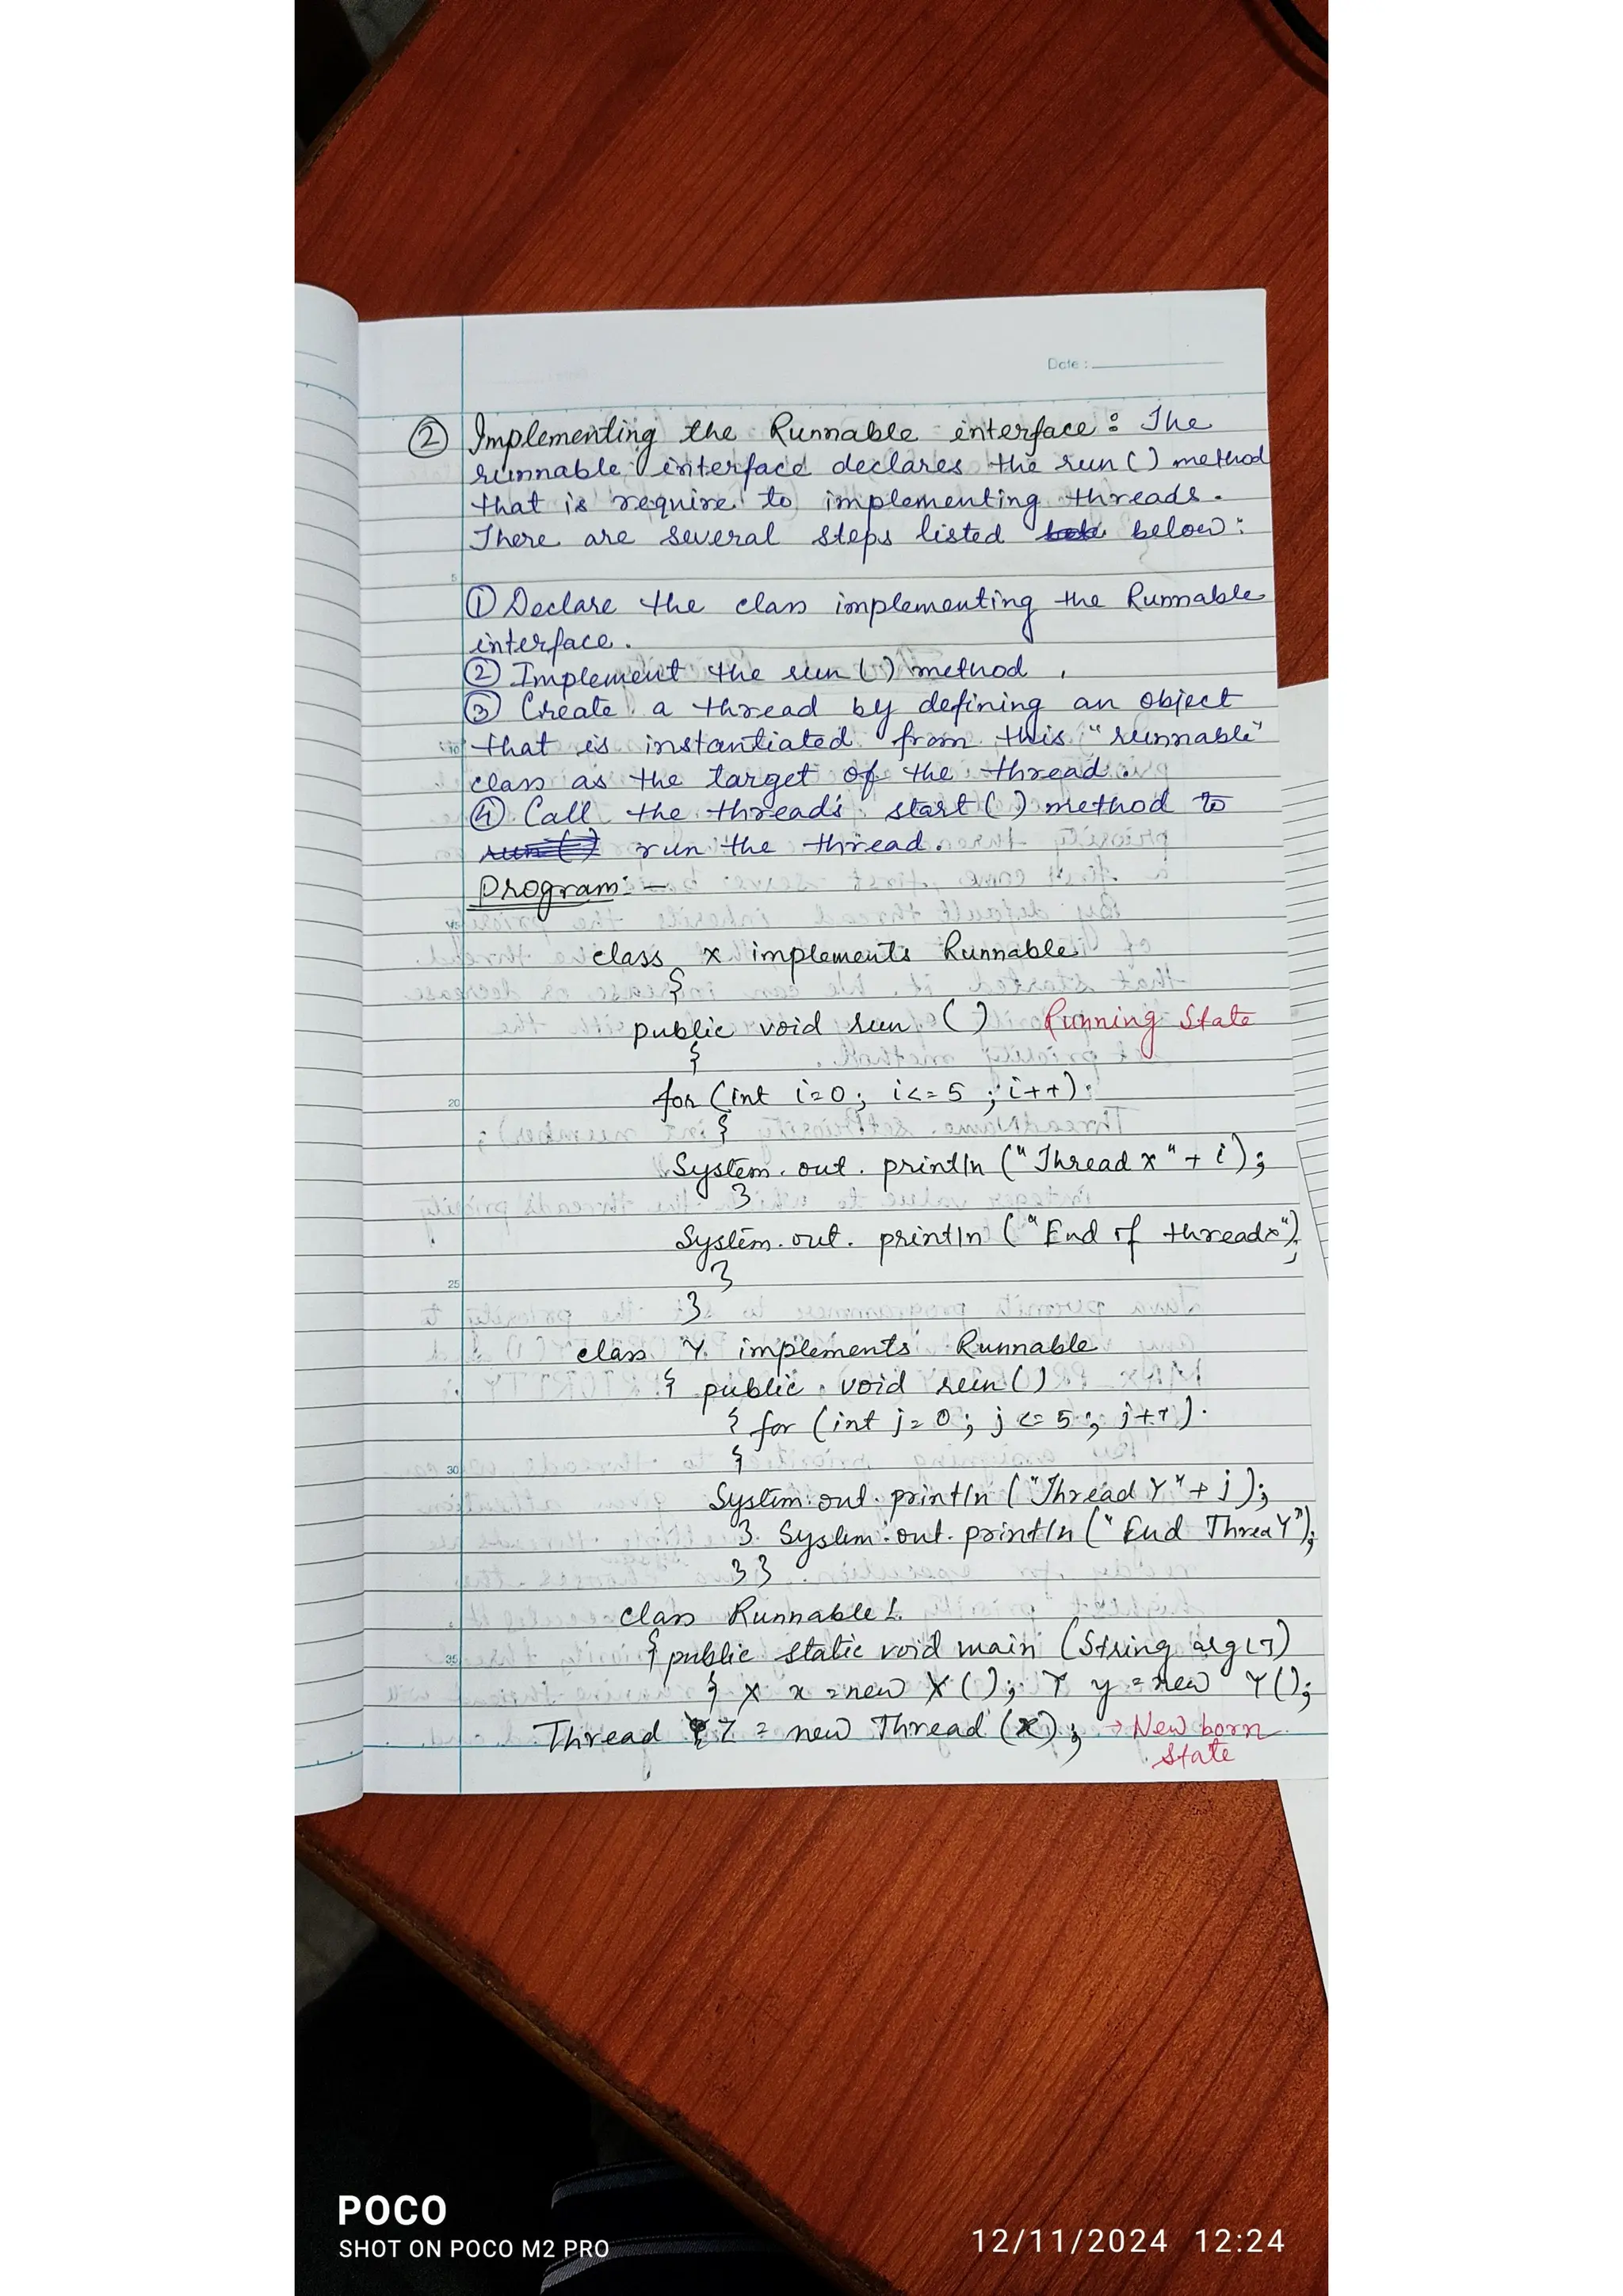 Date :
② Implementing the Runnable interface : The
runnable interface declares the run ( ) method
that is require to implementing threads.
There are several steps listed below :
5
① Declare the class implementing the Runnable
interface.
② Implement the run ( ) method .
③ Create a thread by defining an object
10 that is instantiated from this "runnable"
class as the target of the thread.
④ Call the thread's start ( ) method to
run the thread.
Program : -
class x implements Runnable
{
public void run ( ) Running State
{
20 for (int i=0; i<=5 ; i++)
{
System. out. println ("Thread x" + i);
}
System. out. println ("End of threadx");
25 }
}
class Y implements Runnable
{ public void run ( )
{ for (int j=0; j<=5; j++)
30 {
System. out. println ("Thread Y" + j);
} System. out. println ("End Threa Y");
} }
class Runnable1
35 { public static void main (String arg[])
{ X x = new X ( ); Y y = new Y();
Thread Z = new Thread (x); → New born
State
POCO
SHOT ON POCO M2 PRO
12/11/2024 12:24